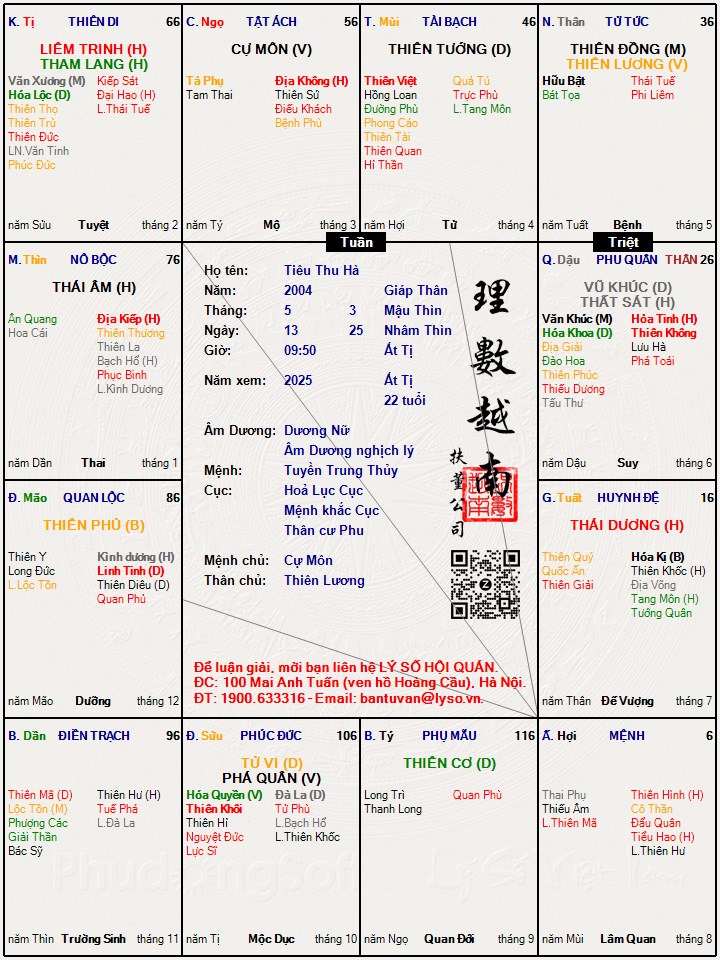 K. Tị THIÊN DI 66
LIÊM TRINH (H)
THAM LANG (H)
Văn Xương (M) Kiếp Sát
Hóa Lộc (D) Đại Hao (H)
Thiên Thọ L.Thái Tuế
Thiên Trù
Thiên Đức
LN.Văn Tinh
Phúc Đức
năm Sửu Tuyệt tháng 2
C. Ngọ TẬT ÁCH 56
CỰ MÔN (V)
Tả Phụ Địa Không (H)
Tam Thai Thiên Sứ
Điếu Khách
Bệnh Phù
năm Tý Mộ tháng 3
T. Mùi TÀI BẠCH 46
THIÊN TƯỚNG (D)
Thiên Việt Quả Tú
Hồng Loan Trực Phù
Đường Phù L.Tang Môn
Phong Cáo
Thiên Tài
Thiên Quan
Hỉ Thần
năm Hợi Tử tháng 4
N. Thân TỬ TỨC 36
THIÊN ĐỒNG (M)
THIÊN LƯƠNG (V)
Hữu Bật Thái Tuế
Bát Tọa Phi Liêm
năm Tuất Bệnh tháng 5
Tuần
Triệt
M. Thìn NÔ BỘC 76
THÁI ÂM (H)
Ân Quang Địa Kiếp (H)
Hoa Cái Thiên Thương
Thiên La
Bạch Hổ (H)
Phục Binh
L.Kình Dương
năm Dần Thai tháng 1
Họ tên: Tiêu Thu Hà
Năm: 2004 Giáp Thân
Tháng: 5 3 Mậu Thìn
Ngày: 13 25 Nhâm Thìn
Giờ: 09:50 Ất Tị
Năm xem: 2025 Ất Tị
22 tuổi
Âm Dương: Dương Nữ
Âm Dương nghịch lý
Mệnh: Tuyền Trung Thủy
Cục: Hoả Lục Cục
Mệnh khắc Cục
Thân cư Phu
Mệnh chủ: Cự Môn
Thân chủ: Thiên Lương
理數越南
扶董公司
Để luận giải, mời bạn liên hệ LÝ SỐ HỘI QUÁN.
ĐC: 100 Mai Anh Tuấn (ven hồ Hoàng Cầu), Hà Nội.
ĐT: 1900.633316 - Email: bantuvan@lyso.vn.
Q. Dậu PHU QUÂN THÂN 26
VŨ KHÚC (D)
THẤT SÁT (H)
Văn Khúc (M) Hỏa Tinh (H)
Hóa Khoa (D) Thiên Không
Địa Giải Lưu Hà
Đào Hoa Phá Toái
Thiên Phúc
Thiếu Dương
Tấu Thư
năm Dậu Suy tháng 6
Đ. Mão QUAN LỘC 86
THIÊN PHỦ (B)
Thiên Y Kình dương (H)
Long Đức Linh Tinh (D)
L.Lộc Tồn Thiên Diêu (D)
Quan Phủ
năm Mão Dưỡng tháng 12
G. Tuất HUYNH ĐỆ 16
THÁI DƯƠNG (H)
Thiên Quý Hóa Kị (B)
Quốc Ấn Thiên Khốc (H)
Thiên Giải Địa Võng
Tang Môn (H)
Tướng Quân
năm Thân Đế Vượng tháng 7
B. Dần ĐIỀN TRẠCH 96
Thiên Mã (D) Thiên Hư (H)
Lộc Tồn (M) Tuế Phá
Phượng Các L.Đà La
Giải Thần
Bác Sỹ
năm Thìn Trường Sinh tháng 11
Đ. Sửu PHÚC ĐỨC 106
TỬ VI (D)
PHÁ QUÂN (V)
Hóa Quyền (V) Đà La (D)
Thiên Khôi Tử Phù
Thiên Hỉ L.Bạch Hổ
Nguyệt Đức L.Thiên Khốc
Lực Sĩ
năm Tị Mộc Dục tháng 10
B. Tý PHỤ MẪU 116
THIÊN CƠ (D)
Long Trì Quan Phù
Thanh Long
năm Ngọ Quan Đới tháng 9
Ấ. Hợi MỆNH 6
Thai Phụ Thiên Hình (H)
Thiếu Âm Cô Thần
L.Thiên Mã Đẩu Quân
Tiểu Hao (H)
L.Thiên Hư
năm Mùi Lâm Quan tháng 8